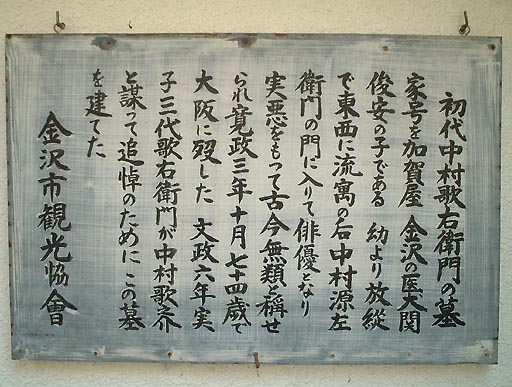 初代中村歌右衛門の墓
家号を加賀屋 金沢の医大関
俊安の子である 幼より放縦
で東西に流寓の后中村源左
衛門の門に入りて俳優となり
実悪をもって古今無類と稱せ
られ寛政三年十月七十四歳で
大阪に歿した 文政六年実
子三代歌右衛門が中村歌之介
と謀って追悼のために この墓
を建てた
金沢市観光協會